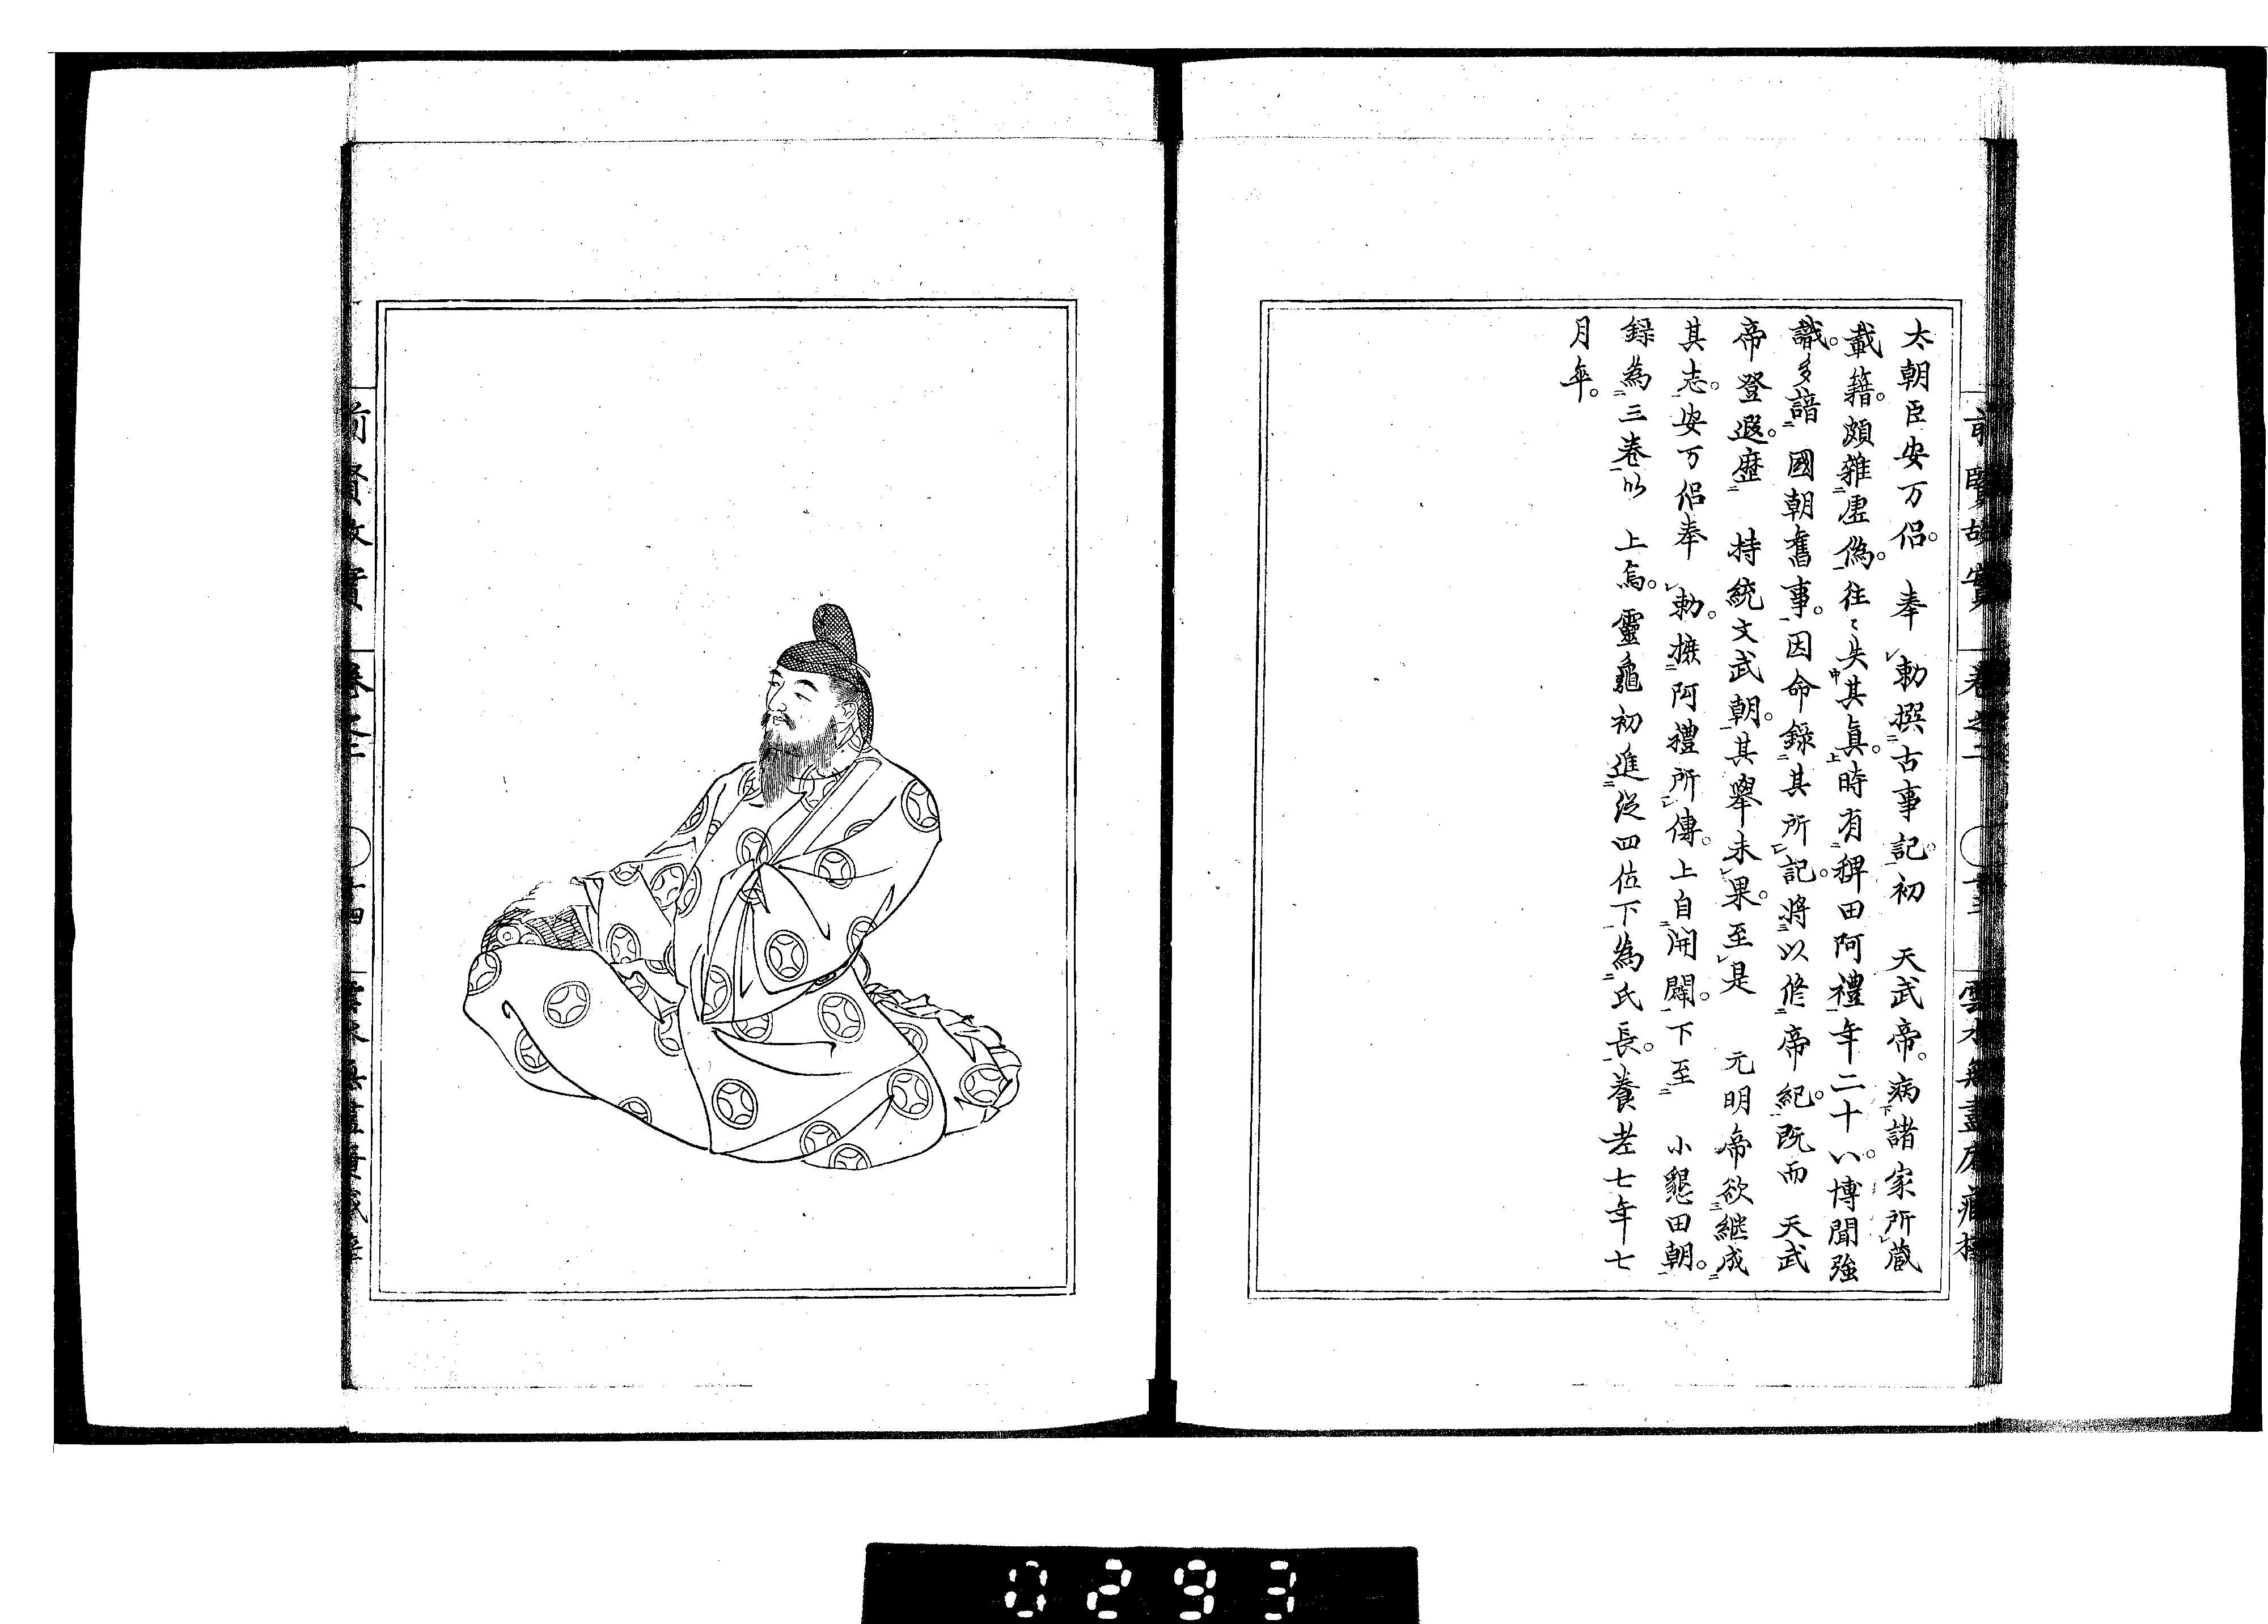 太朝臣安万侶。　奉　勅撰古事記。初　天武帝。病諸家所蔵
載籍。頗雜虛僞。往〻失其眞。時有稗田阿禮年二十八。博聞強
識。多諳　國朝舊事。因命錄其所記。將以修帝紀。既而　天武
帝登遐。歴　持統文武朝。其擧未果。至是　元明帝欲継成
其志。安万侶奉　勅。據阿禮所傳。上自開闢。下至　小墾田朝。
録為三巻以　上焉。靈龜初進從四位下為氏長。養老七年七
月卒。
前賢故實　卷之二
前賢故實　卷之二
0293